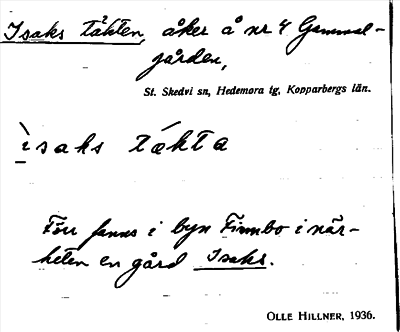 Isaks täkten, åker å nr 4 Gammal-
gården,
St. Skedvi sn, Hedemora tg, Kopparbergs län.
ìsaks tækta
Förr fanns i byn Finnbo i när-
heten en gård Isaks.
OLLE HILLNER, 1936.